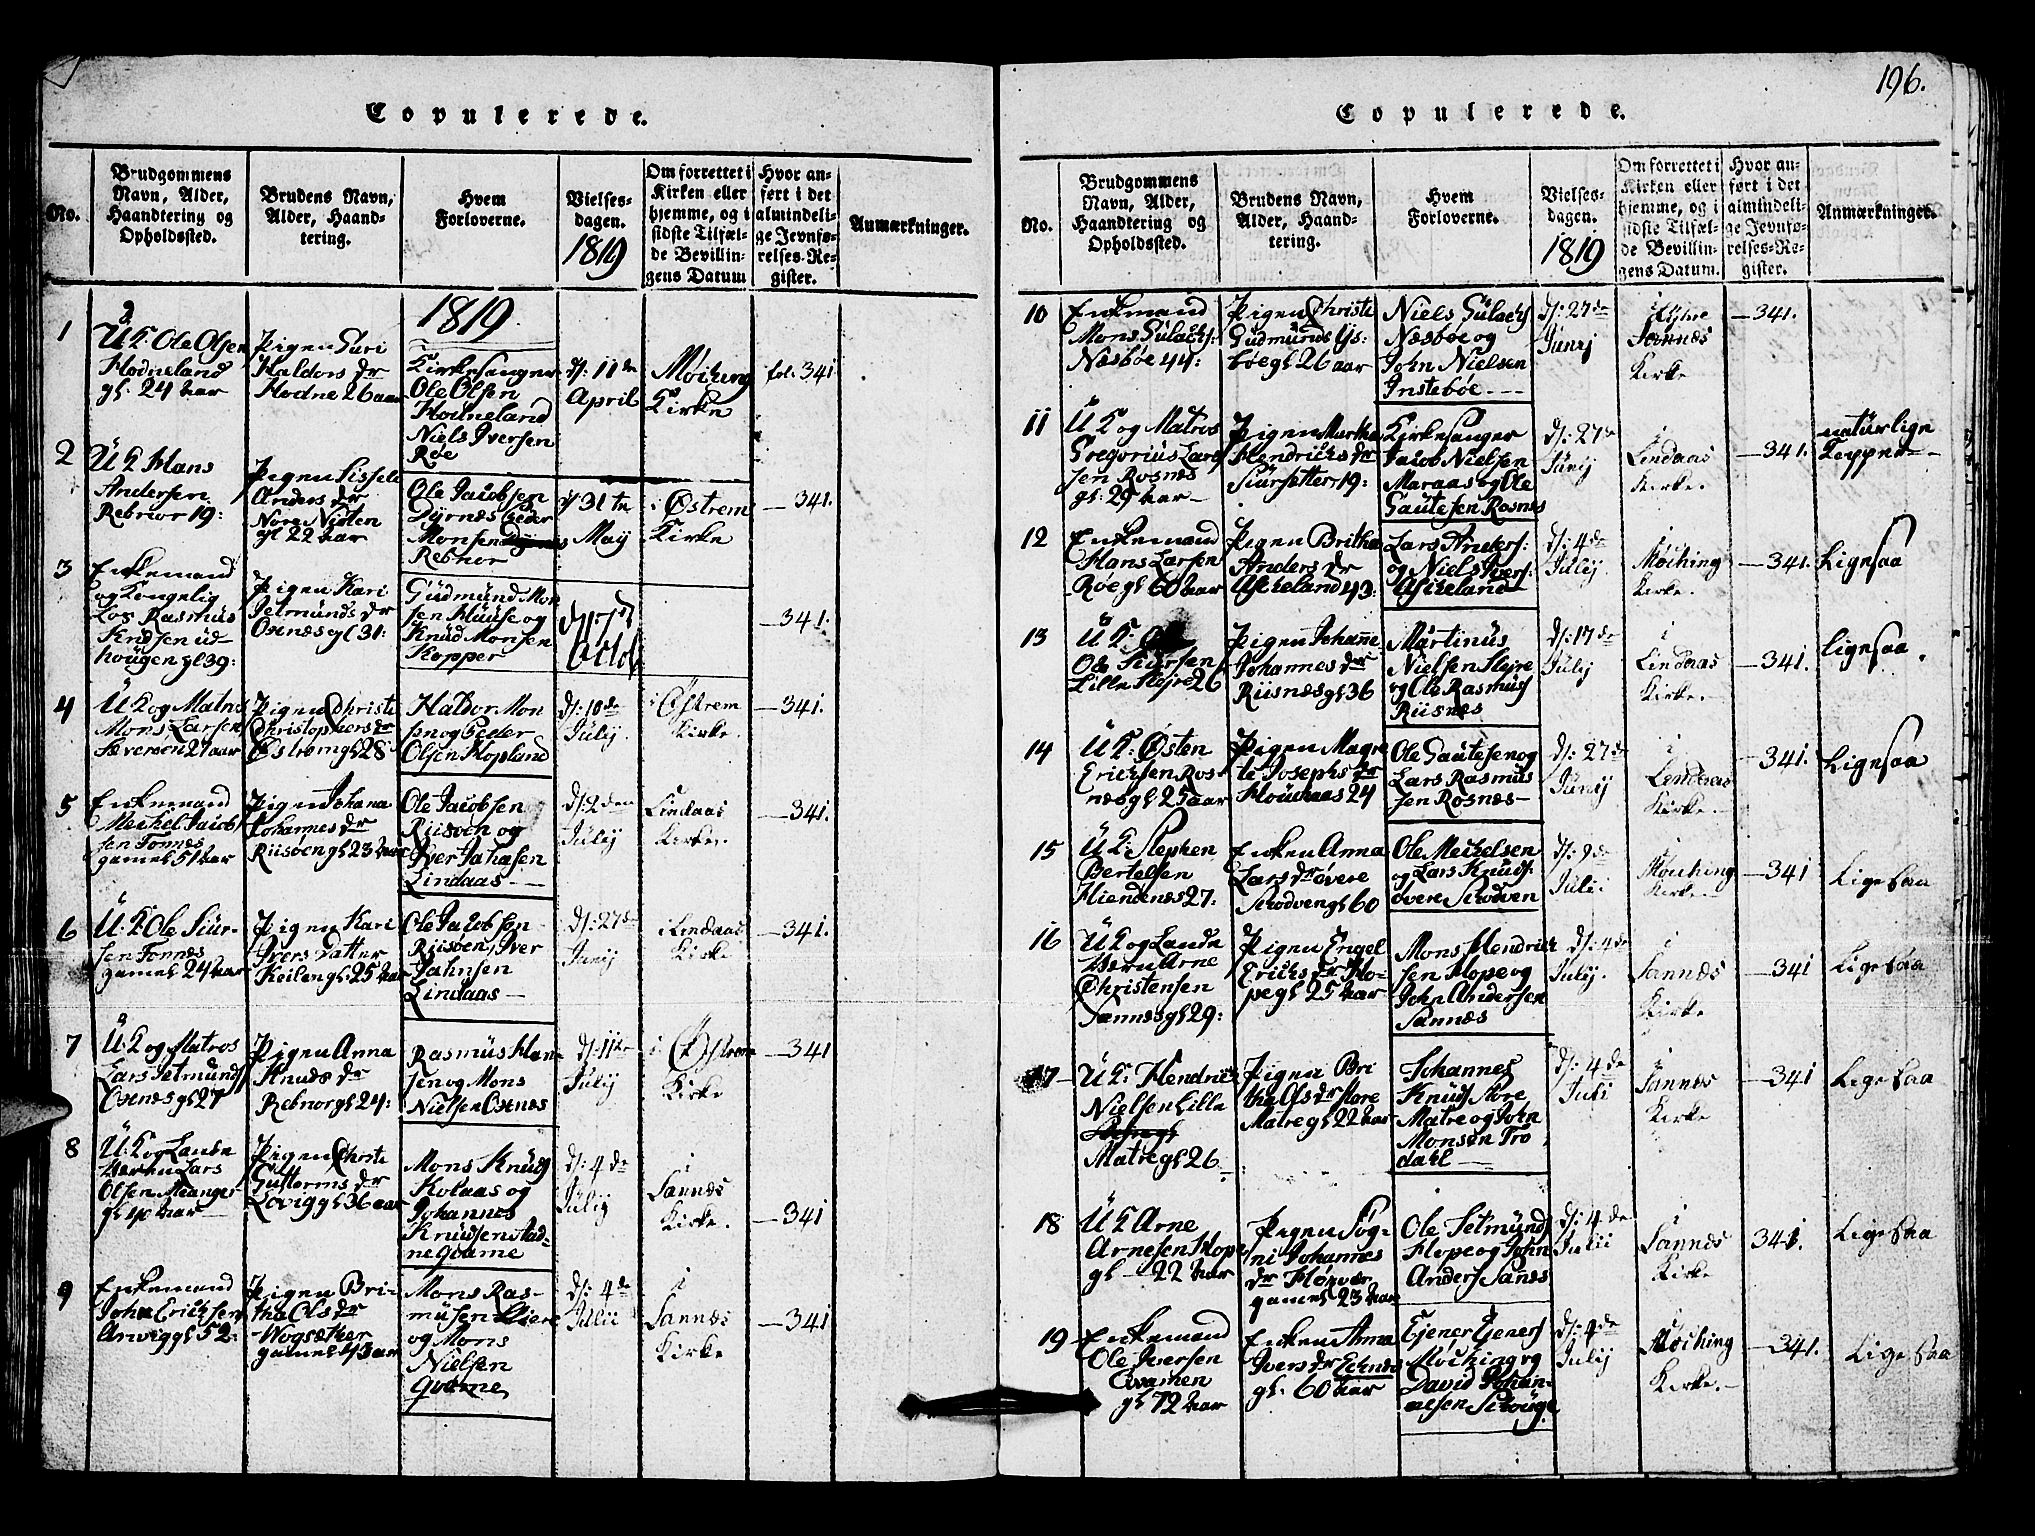 196.
Copulerede.
No.
Brudgommens
Navn, Alder,
Haandtering og
Opholdssted.
Brudens Navn,
Alder, Haand-
tering.
Hvem
Forloverne.
Vielses-
dagen.
1819
Om forrettet i
Kirken eller
hjemme, og i
sidste Tilfæl-
de Bevillin-
gens Datum
Hvor an-
ført i det
almindeli-
ge Jevnfø-
relses-Re-
gister.
Anmærkninger.
1819
1
Ole Olsen
Hodneland
gl. 24 aar
Pigen Guri
Haldors dr
Hodne 26 aar
Kirkesanger
Ole Olsen
Hodneland
Niels Iversen
Røe
d: 11 de
April
Møching
Kirke
fol. 341
2
U K Hans
Andersen
Rebnor 19:
Pigen Sissele
Anders dr
gl 22 aar
Ole Jacobsen
Dyrnes Peder
Monsen
Rebnor
31 te
May
i Østrem
Kirke
— 341.
3
Enkemand
og Kongelig
Los Rasmus
Kndsen ud
hougen gl 39:
Pigen Kari
Jetmunds dr
Oxnes gl 31:
Gudmund Mon
sen Huuse og
Knud Monsen
Kopper
Octob
— 341.
4
U K og Matros
Mons Larsen
Sæversen 27 aar
Pigen Christi
Christophers dr
Østrem gl 28
Haldor Mon
sn og Peder
Olsen Hopland
d: 10 de
Julij.
i Østrem
Kirke.
— 341.
5
Enkemand
Meckel Jacob
sen Fonnes
gamel 51 aar
Pigen Johana
Johannes dr
Riisøen gl 23 aar
Ole Jacobsen
Riisøen og
Iver Jahnsen
Lindaas —
d: 2 den
Julij
Lindaas
Kirke.
— 341.
6
U K: Ole Siur-
sen Fonnes
gamel 24 aar
Pigen Kari
Ivers datter
Keilen gl 25 aar
Ole Jacobsen
Riisøen, Iver
Jahnsen
Lindaas —
d: 27 de
Junij
i Lindaas
Kirke
— 341.
7
U K og Matros
Lars Jetmunds
Oxnes gl 27
Pigen Anna
Knuds dr
Rebnor gl 24:
Rasmus Han
sen og Mons
Nielsen Oxnes
d: 11 te
Julij
i Østrem
Kirke
— 341
8
U K og Lande
Værn Lars
Olsen Manger
gl 40 aar
Pigen Christi
Guttorms dr
Lovig gl 36 aar
Mons Knuds
Kolaas og
Johannes
Knudsen Nad-
ne Qvarne
d: 4 de
Julij
i
Sannes
Kirke.
— 341
9
Enkemand
John Ericksen
Anvig gl 52:
Pigen Bri-
tha Ols dr
Wogsæther
gamel 43 aar
Mons Ras-
musen
og Mons
Nielsen
Qvarne
d: 4 de
Julii
i
Sannes
Kirke
— 341
Copulerede.
No.
Brudgommens
Navn, Alder,
Haandtering og
Opholdssted.
Brudens Navn,
Alder, Haand-
tering.
Hvem
Forloverne.
Vielses-
dagen.
1819
Om forrettet i
Kirken eller
hjemme, og i
sidste Tilfæl-
de Bevillin-
gens Datum.
Hvor an-
ført i det
almindeli-
ge Jevnfø-
relses-Re-
gister.
Anmærkninger.
10
Enkemand
Mons Gulachs:
Næsbøe 44:
Pigen Christi
Gudmunds Us:
bøe gl 26 aar
Niels Gulachs
Næsbøe og
John Nielsen
Instebøe. —
d: 27 de
Junij
i
Sannes
Kirke
— 341.
11
U K og Matros
Gregorius Lars
sen Rosnes
gl: 29 aar —
Pigen Martha
Hendricks dr
Siursetter 19:
Kirkesanger
Jacob Nielsen
Maraas og Ole
Gautesen Rosnes
d: 27 de
Junij
i
Lindaas
Kirke.
— 341.
naturlige
Kopper —
12
Enkemand
Hans Larsen
Røe gl 60 aar
Pigen Britha
Anders dr
Askeland 43:
Lars Anders:
og Niels Ivers:
Askeland
d: 4 de
Julij.
Møching
Kirke.
— 341.
Ligesaa
13
U K:
Ole Siursen
Lille Hejre 26
Pigen Johanne
Johannes dr
Riisnes gl 36
Martinus
Nielsen Hejre
og Ole Rasmus
Riisnes
d: 17 de
Julij
i
Lindaas
Kirke.
— 341.
Ligesaa.
14
U K: Østen
Ericksen Ros-
nes gl 25 aar
Pigen Magre
te Josephs dr
Houchaas 24
Ole Gautesen og
Lars Rasmus
sen Rosnes —
d: 27 de
Junij
i
Lindaas
Kirke.
— 341.
Ligesaa
15
U K: Stephen
Bertelsen
Hiendenes 27:
Enken Anna
Lars dr øvere
Skodven gl 60
Ole Meckelsen
og Lars Knuds:
øvere Skodven
d: 9 de
Julii
Møching
Kirke —
— 341
Lige saa
16
U K og Lande
Værn Arne
Christensen
Sannes gl 29:
Pigen Engel
Ericks dr Ho-
pe gl 25 aar
Mons Hendrick
sen Hope og
John Andersen
Sannes
d: 4 de
Julij.
i
Sannes
Kirke
— 341
Lige saa
17 —
U K: Hendric
Nielsen Lille
Matre gl 26
Pigen Bri
tha Ols dr store
Matre gl 22 aar
Johannes
Knuds store
Matre og John
Monsen Tro
dahl —
d: 4 de
Juli
i
Sannes
Kirke
— 341
Lige saa
18
U K Arne
Arnesen Hope
gl — 22 aar
Pigen Søg-
ni Johannes
dr
gamel 23 aar
Ole Jetmund
Hope og John
Anders Sanes
d: 4 de
Julii
i
Sannes
Kirke
341.
Lige saa
19
Enkemand
Ole Iversen
Qvamen
gl 72 aar
Enken Anna
Ivers dr Echnes
gl. 60 aar
Ejener Ejeners
Møching og
David Johan-
nesen Skouge
d: 4 de
Julij
Møching
Kirke. —
— 341.
Lige saa